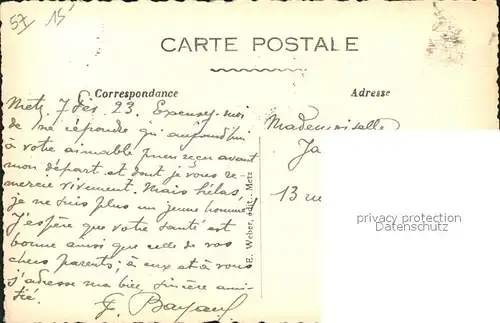 57 15
CARTE POSTALE
Correspondance
Adresse
Metz, 7 Fév 23. Excusez-moi
de ne répondre qu'aujourd'hui
à votre aimable pneu reçu avant
mon départ et dont je vous re-
mercie vivement. Mais hélas,
je ne suis plus un jeune homme!
J'espère que votre santé est
bonne ainsi que celle de vos
chers parents; à eux et à vous
j'adresse ma bien sincère ami-
tié.
Mademoiselle
Ja
13 rue
E. Weber, édit., Metz
privacy protection
Datenschutz